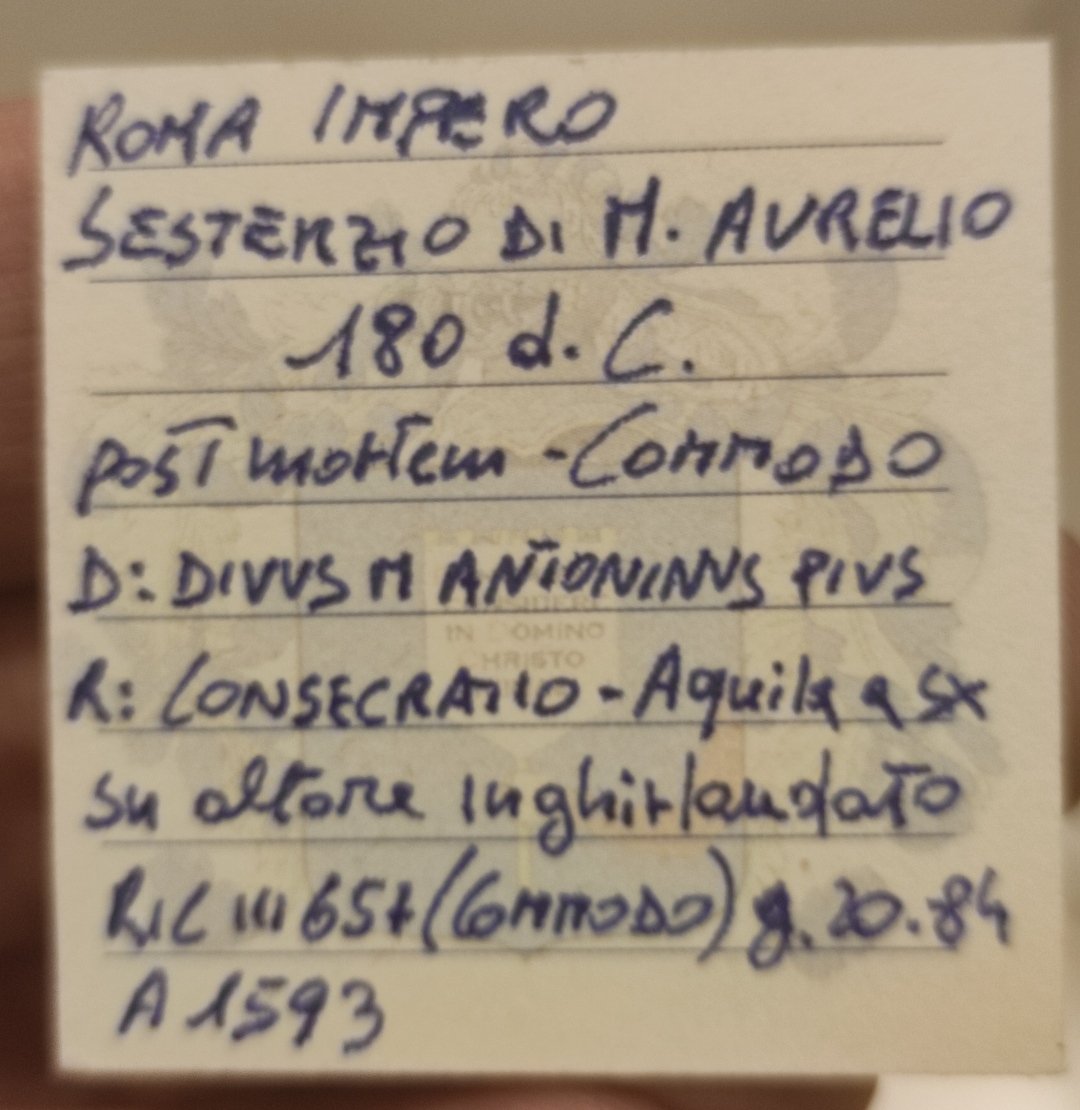 ROMA IMPERO
SESTERZIO DI M. AURELIO
180 d. C.
post mortem - COMMODO
D: DIVVS M ANTONINVS PIVS
R: CONSECRATIO - Aquila a sx
su altare inghirlandato
RIC III 657 (COMMODO) g. 20.84
A 1593
IN DOMINO